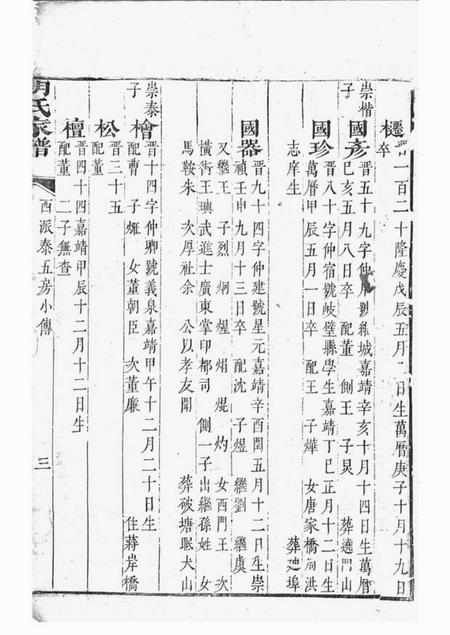 櫏 晉一百二十隆慶戊辰五月 日生萬曆庚子十月十九日
卒
崇楷
子
國彥 晉五十九字仲 號維城嘉靖辛亥十月十四日生萬曆
己亥五月八日卒 配董 側王 子炅 葬 山
國珍 晉八十字仲宿號岐璧縣學生嘉靖丁巳正月十二日生
萬曆甲辰五月一日卒 配王 子燁 女唐家橋 洪
志庠生 葬 埠
國器 晉九十四字仲建號星元嘉靖辛酉閏五月十二日生崇
禎壬申九月十三日卒 配沈 子煜 繼劉 繼虞
又繼王 子烈 炯 煋 焆 焜 灼 女西門王 次
橫街王瑛武進士廣東掌印都司 側一子出繼孫姓 女
馬鞍朱 次厚社余 公以孝友聞 葬破塘眠犬山
崇泰
子
檜 晉十四字仲卿號義泉嘉靖甲午十二月二十日生
配曹 子 女董朝臣 次董廉 住蔣岸橋
松 晉三十五
配董
檀 晉四十四嘉靖甲辰十二月十二日生
配董 二子無查
氏家譜
西派泰五房小傳
三